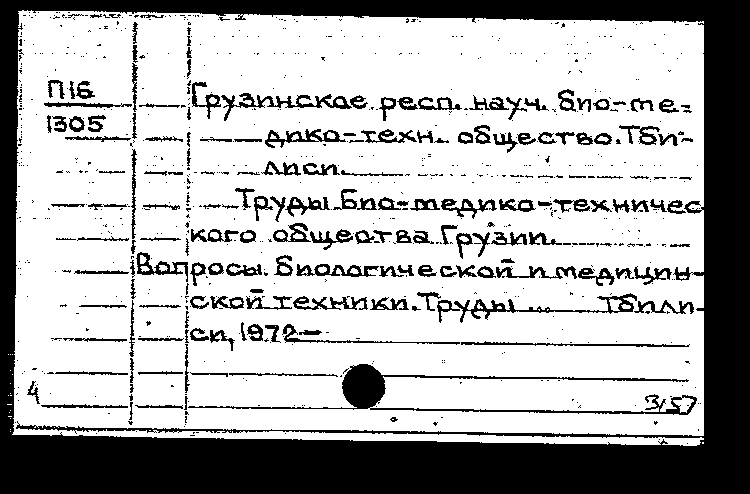 П16
1305
Грузинское респ. науч. био-ме-
дико-техн. общество. Тби-
лиси.
Труды Био-медико-техничес
кого общества Грузии.
Вопросы биологической и медицин-
ской техники. Труды ... Тбили-
си, 1972—
4
3157